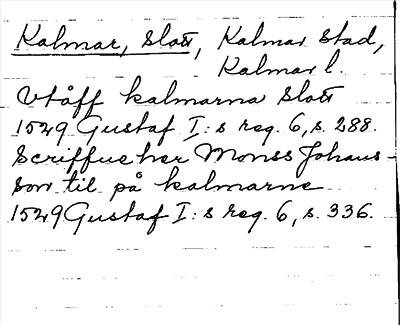 Kalmar, slott, Kalmar stad,
Kalmar l.
Vtåff kalmarna Slott
1529 Gustaf I:s reg. 6, s. 288.
Scriffue her Monss Johans-
son til på kalmarne
1529 Gustaf I:s reg. 6, s. 336.